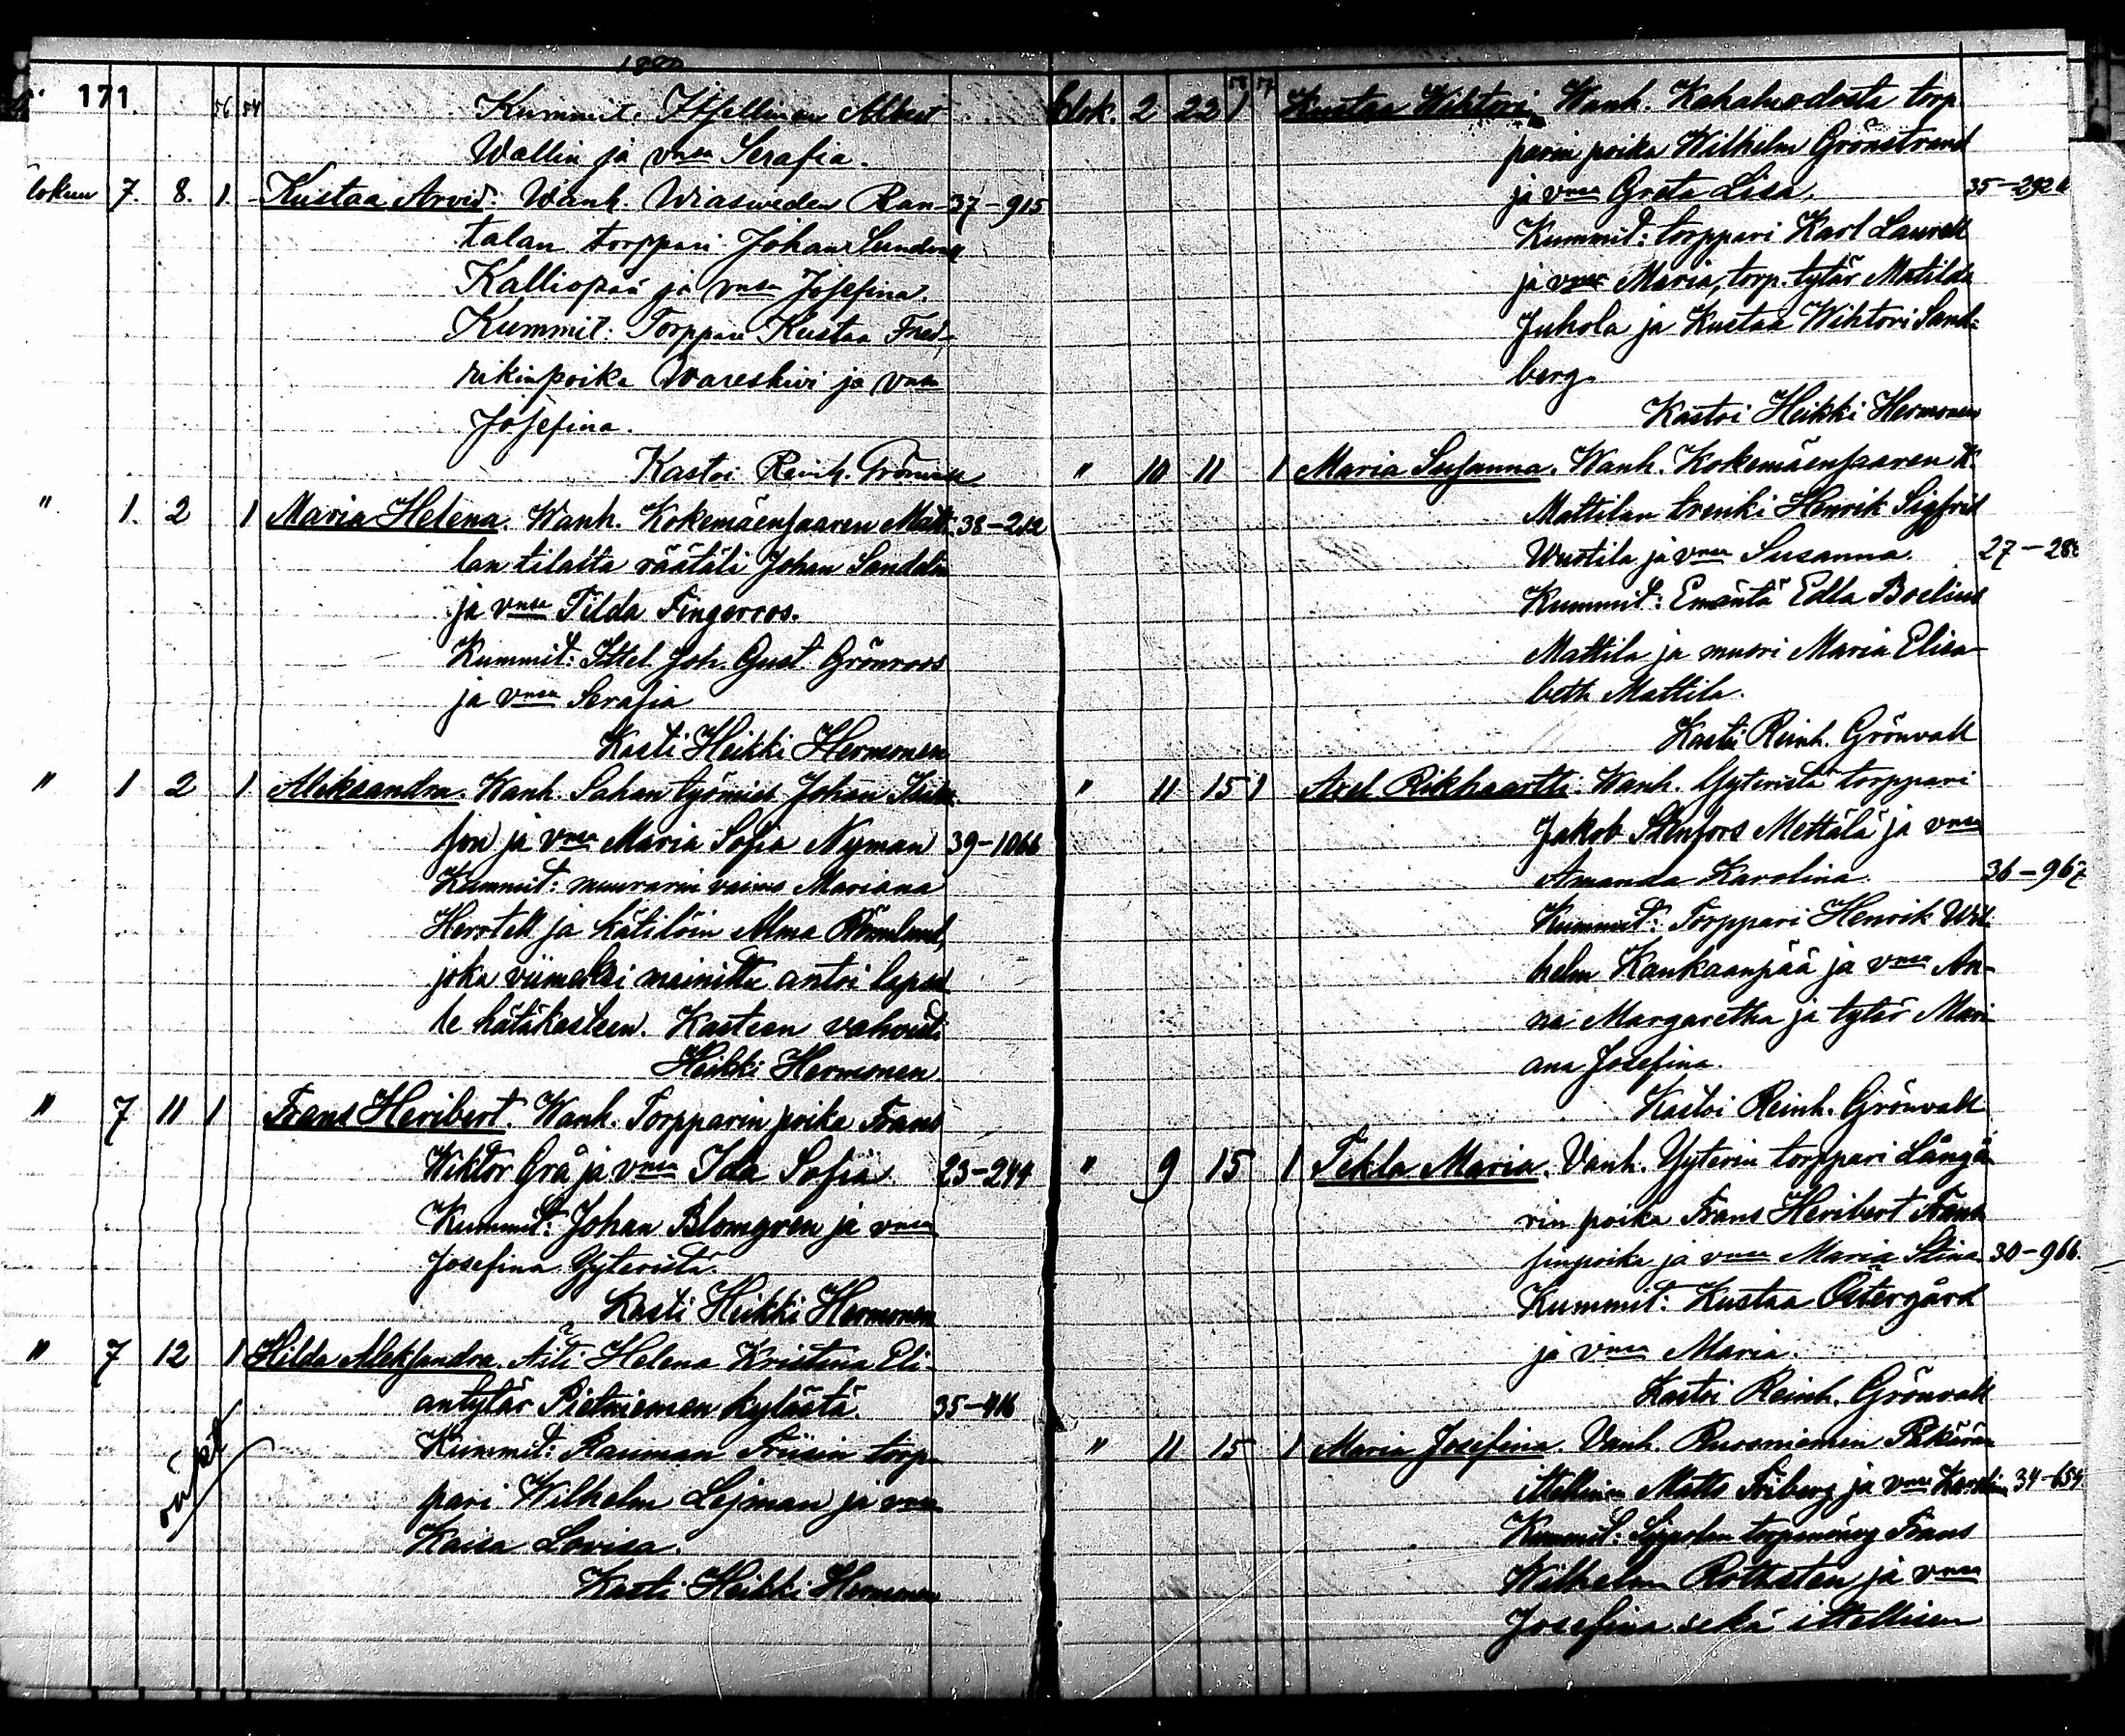 171
1890
56 54 Kummit. Itsellinen Albert
Wallin ja vmsa Serafia.
lokuu 7. 8. 1. Kustaa Arvid: Wanh. Wiasweden Ran- 37-915
talan torppari Johan
Kalliopää ja vmsa Josefina.
Kummit: Torppari Kustaa Fred-
rikinpoika Wareskivi ja vmsa
Josefina.
Kastoi Reinh. Grönvall
" 1. 2 1 Maria Helena. Wanh. Kokemäensaaren Matti- 38-212
lan tilalta räätäli Johan Sandelin
ja vmsa Tilda Fingerroos.
Kummit: Ittel. Joh. Gust. Grönroos
ja vmsa Serafia
Kasti Heikki Hermonen
" 1 2 1 Aleksandra. Wanh. Sahan työmies Johan
son ja vmsa Maria Sofia Nyman 39-1066
Kummit: muurarin vaimo Mariana
Herstell ja kätilöin Alma
joka viimeksi mainittu antoi lapsel-
le hätäkasteen. Kasteen vahvisti
Heikki Hermonen
" 7 11 1 Frans Heribert. Wanh. Torpparin poika Frans
Wiktor Grå ja vmsa Ida Sofia 23-244
Kummit: Johan Blomgren ja vmsa
Josefina Yyteristä.
Kasti Heikki Hermonen
" 7 12 1 Hilda Aleksandra. Äiti Helena Kristina Eli-
antytär Pietniemen kylästä. 35-416
Kummit: Rauman Friisin torp-
pari Wilhelm Lejman ja vmsa
Kaisa Lovisa.
Kasti Heikki Hermonen
Elok. 2 22 1 58 57 Kustaa Wihtori, Wanh. Kahaluodosta torp-
parin poika Wilhelm Grönstrand
ja vmsa Greta Lisa, 35-292
Kummit: torppari Karl Laurell
ja vmsa Maria, torp. tytär Matilda
Juhola ja Kustaa Wihtori Sand-
berg.
Kastoi Heikki Hermonen
" 10 11 1 Maria Susanna. Wanh. Kokemäensaaren W.
Mattilan trenki Henrik Sigfrid
Wustila ja vmsa Susanna. 27-28
Kummit: Emäntä Edla Boelius
Mattila ja muori Maria Elisa-
beth Mattila.
Kastoi Reinh. Grönvall
" 11 15 1 Axel Rikhaartti. Wanh. Yyteristä torppari
Jakob Stenfors Mettälä ja vmsa
Amanda Karolina. 36-967
Kummit: Torppari Henrik Wil-
helm Kankaanpää ja vmsa An-
na Margaretha ja tytär Mari-
ana Josefina.
Kastoi Reinh. Grönvall
" 9 15 1 Tekla Maria. Vanh. Yyterin torppari Långå-
rin poika Frans Heribert Frans-
sinpoika ja vmsa Maria Stina 30-966.
Kummit: Kustaa Östergård
ja vmsa Maria.
Kastoi Reinh. Grönvall
" 11 15 1 Maria Josefina. Vanh. Ruosniemen
ittellinen Matts Friberg ja vmsa Karolina 34-654
Kummit: Frans
Wilhelm Rothsten ja vmsa
Josefina sekä ittellisen